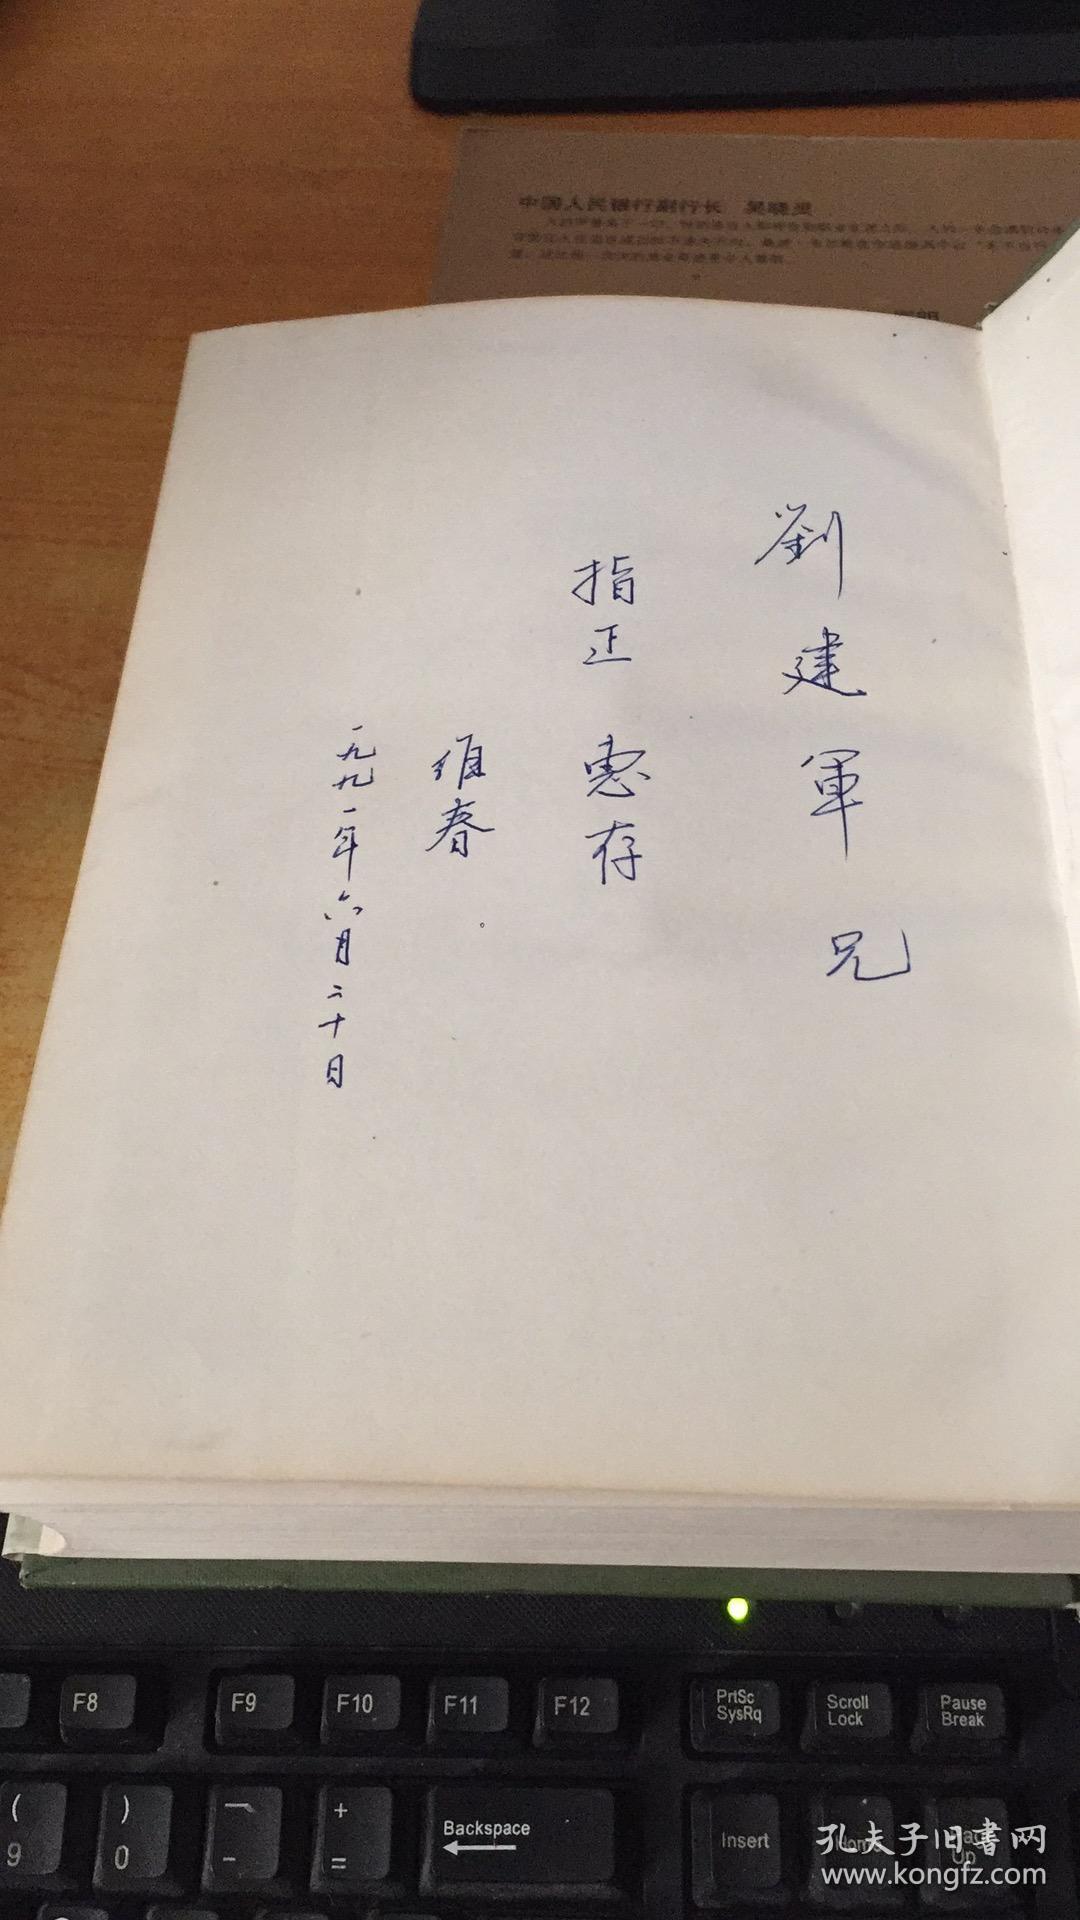 中国人民银行副行长 吴晓灵
劉建軍兄
指正 惠存
维春
一九九一年六月二十日
F8
F9
F10
F11
F12
PrtSc
SysRq
Scroll
Lock
Pause
Break
(
9
)
0
—
-
+
=
Backspace
Insert
Home
Up
孔夫子旧書网
www.kongfz.com